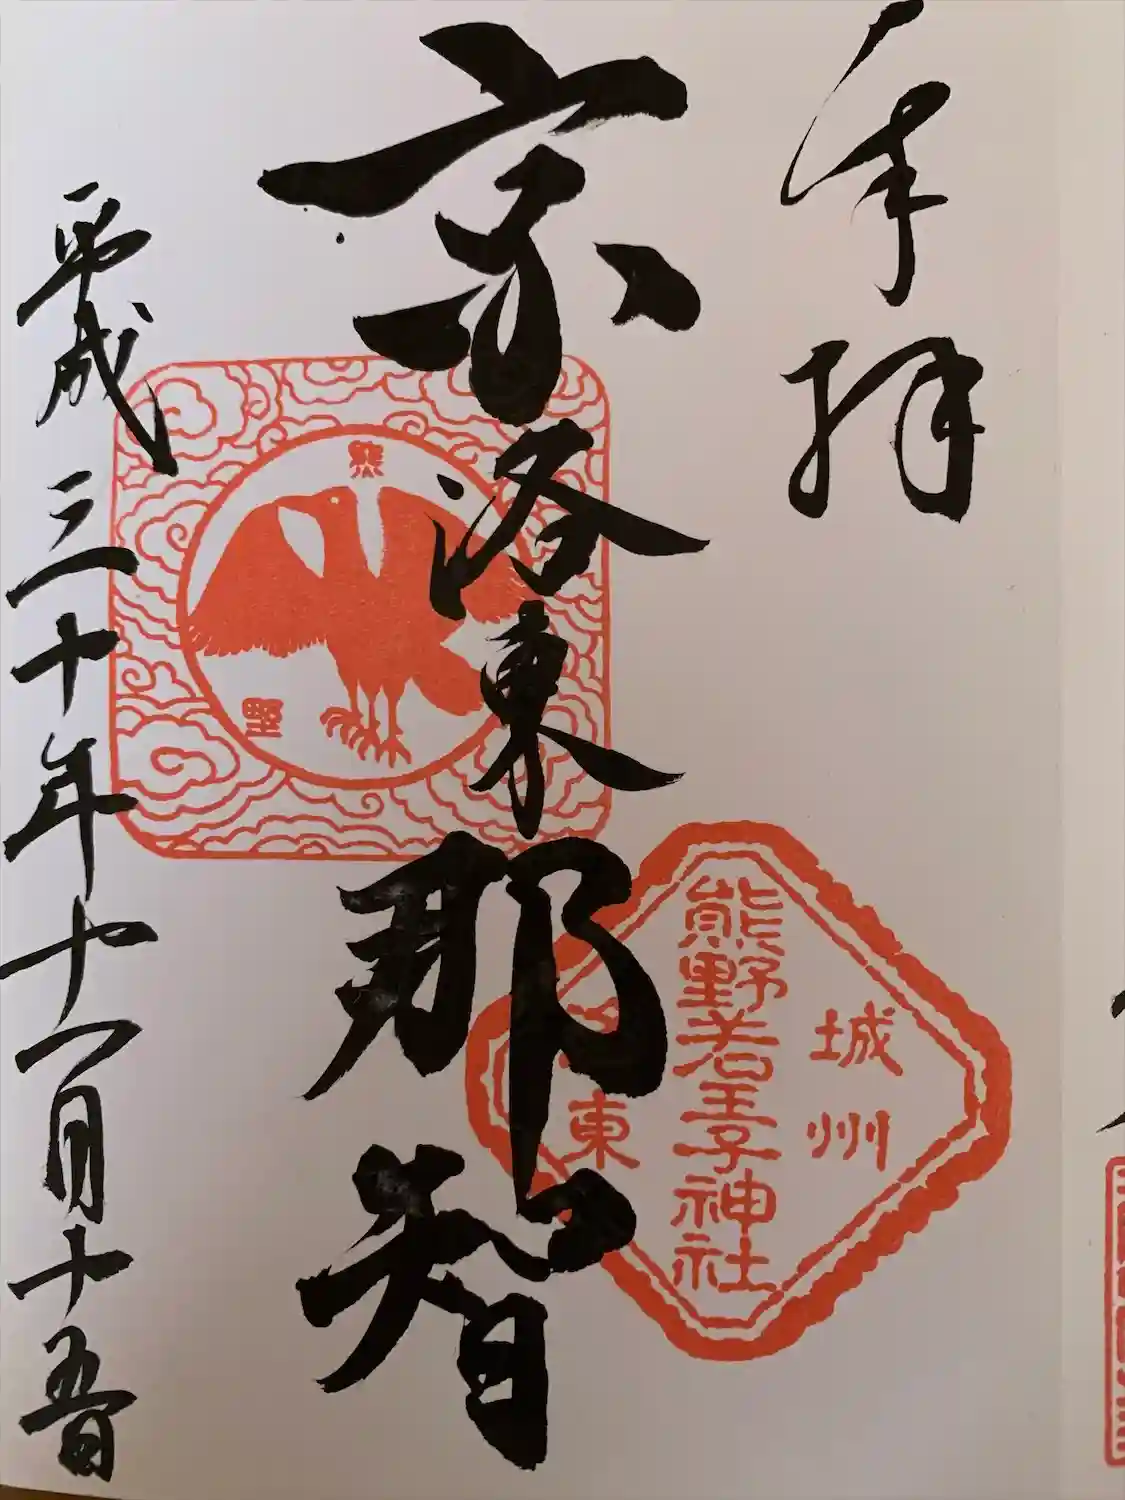 奉拝
京洛東那智
城州
熊野若王子神社
東
熊
野
平成三十年十一月十五日